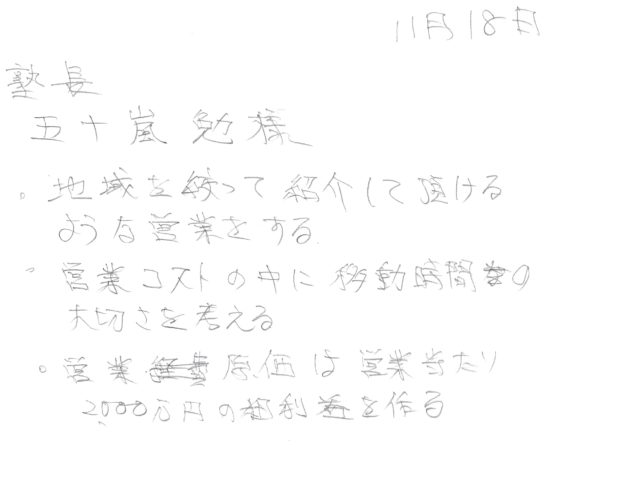 11月18日
塾長
五十嵐 勉様
・地域を絞って紹介して頂ける
ような営業をする
・営業コストの中に移動時間の
大切さを考える
・営業原価は営業当たり
2000万円の粗利益を作る